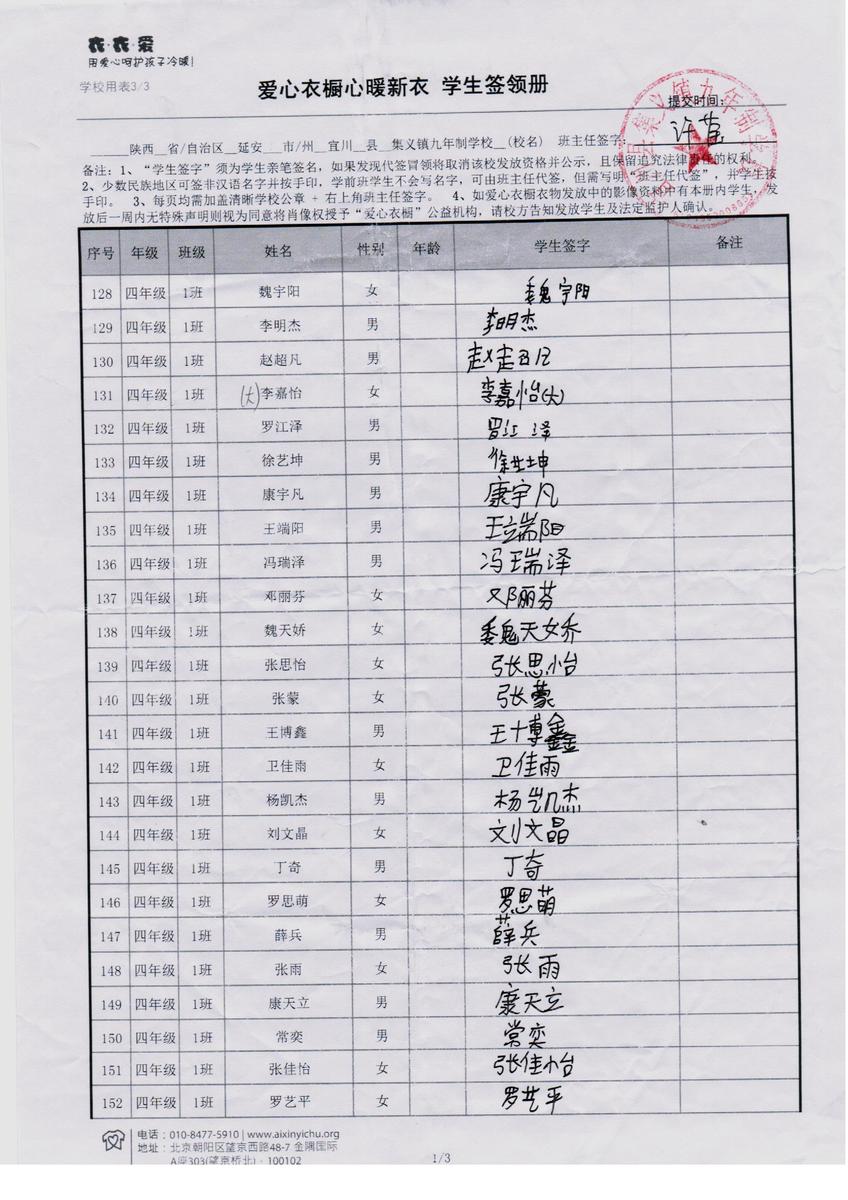 衣·衣·爱
用爱心呵护孩子冷暖!
学校用表3/3
爱心衣橱心暖新衣 学生签领册
提交时间:
陕西 省/自治区 延安 市/州 宜川 县 集义镇九年制学校 (校名) 班主任签字: 许莲
备注: 1、“学生签字”须为学生亲笔签名,如果发现代签冒领将取消该校发放资格并公示,且保留追究法律责任的权利。
2、少数民族地区可签非汉语名字并按手印,学前班学生不会写名字,可由班主任代签,但需写明“班主任代签”,并学生按
手印。 3、每页均需加盖清晰学校公章 + 右上角班主任签字。 4、如爱心衣橱衣物发放中的影像资料中有本册内学生,发
放后一周内无特殊声明则视为同意将肖像权授予“爱心衣橱”公益机构,请校方告知发放学生及法定监护人确认。
序号 年级 班级 姓名 性别 年龄 学生签字 备注
128 四年级 1班 魏宇阳 女 魏宇阳
129 四年级 1班 李明杰 男 李明杰
130 四年级 1班 赵超凡 男 赵超凡
131 四年级 1班 (大)李嘉怡 女 李嘉怡(大)
132 四年级 1班 罗江泽 男 罗江泽
133 四年级 1班 徐艺坤 男 徐艺坤
134 四年级 1班 康宇凡 男 康宇凡
135 四年级 1班 王端阳 男 王端阳
136 四年级 1班 冯瑞泽 男 冯瑞泽
137 四年级 1班 邓丽芬 女 邓丽芬
138 四年级 1班 魏天娇 女 魏天娇
139 四年级 1班 张思怡 女 张思怡
140 四年级 1班 张蒙 女 张蒙
141 四年级 1班 王博鑫 男 王博鑫
142 四年级 1班 卫佳雨 女 卫佳雨
143 四年级 1班 杨凯杰 男 杨凯杰
144 四年级 1班 刘文晶 女 刘文晶
145 四年级 1班 丁奇 男 丁奇
146 四年级 1班 罗思萌 女 罗思萌
147 四年级 1班 薛兵 男 薛兵
148 四年级 1班 张雨 女 张雨
149 四年级 1班 康天立 男 康天立
150 四年级 1班 常奕 男 常奕
151 四年级 1班 张佳怡 女 张佳怡
152 四年级 1班 罗艺平 女 罗艺平
电话: 010-8477-5910 | www.aixinyichu.org
地址: 北京朝阳区望京西路48-7 金隅国际
A座303(望京桥北) · 100102
1/3